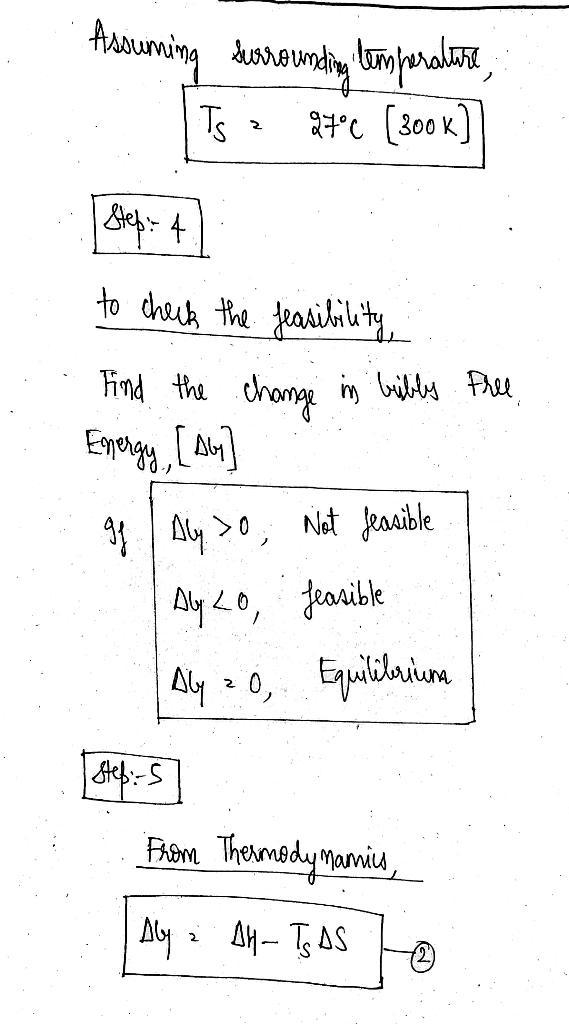 Assuming surrounding temperature,
Ts = 27°C [300 K]
Step:- 4
to check the feasibility,
Find the change in Gibbs Free
Energy, [ΔG]
If
ΔG > 0, Not feasible
ΔG < 0, feasible
ΔG = 0, Equilibrium
Step:- 5
From Thermodynamics,
ΔG = ΔH - Ts ΔS
2